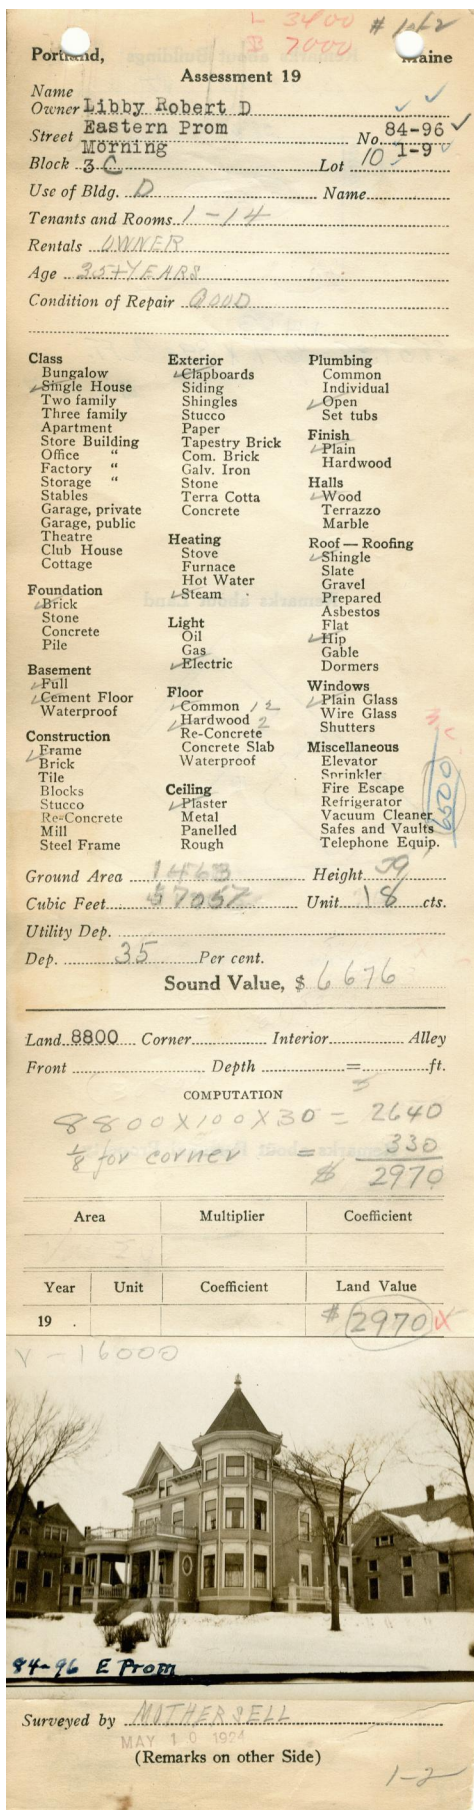 L 3400 # 1 of 2
B 7000
Portland, Maine
Assessment 19
Name
Owner Libby Robert D
Street Eastern Prom No. 84-96
Morning 1-9
Block 3 C Lot 10
Use of Bldg. D Name
Tenants and Rooms 1-14
Rentals OWNER
Age 35+YEARS
Condition of Repair GOOD
Class
Bungalow
Single House
Two family
Three family
Apartment
Store Building
Office "
Factory "
Storage "
Stables
Garage, private
Garage, public
Theatre
Club House
Cottage
Foundation
Brick
Stone
Concrete
Pile
Basement
Full
Cement Floor
Waterproof
Construction
Frame
Brick
Tile
Blocks
Stucco
Re-Concrete
Mill
Steel Frame
Exterior
Clapboards
Siding
Shingles
Stucco
Paper
Tapestry Brick
Com. Brick
Galv. Iron
Stone
Terra Cotta
Concrete
Heating
Stove
Furnace
Hot Water
Steam
Light
Oil
Gas
Electric
Floor
Common 1 2
Hardwood 2
Re-Concrete
Concrete Slab
Waterproof
Ceiling
Plaster
Metal
Panelled
Rough
Plumbing
Common
Individual
Open
Set tubs
Finish
Plain
Hardwood
Halls
Wood
Terrazzo
Marble
Roof — Roofing
Shingle
Slate
Gravel
Prepared
Asbestos
Flat
Hip
Gable
Dormers
Windows
Plain Glass
Wire Glass
Shutters
Miscellaneous
Elevator
Sprinkler
Fire Escape
Refrigerator
Vacuum Cleaner
Safes and Vaults
Telephone Equip.
6500
Ground Area 1463 Height 39'
Cubic Feet 57057 Unit 18 cts.
Utility Dep.
Dep. 35 Per cent.
Sound Value, $ 6676
Land 8800 Corner Interior Alley
Front Depth = ft.
COMPUTATION
8800 X 100 X 30 = 2640
1/8 for corner = 330
$ 2970
Area Multiplier Coefficient
Year Unit Coefficient Land Value
19 . $ 2970
V - 16000
84-96 E Prom
Surveyed by MOTHERSELL
MAY 10 1924
(Remarks on other Side)
1-2